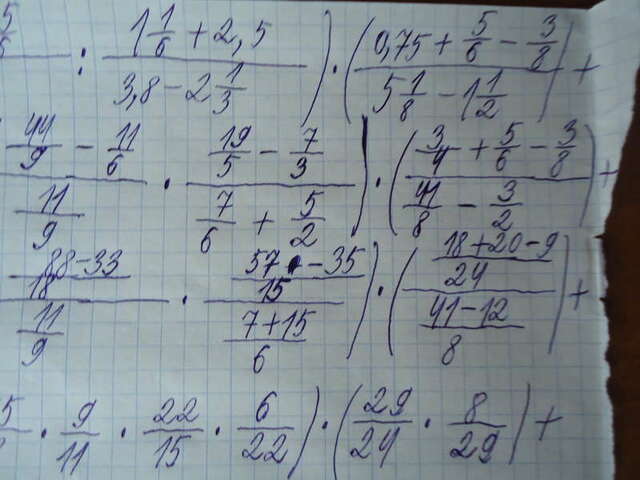 5/6 : (1 1/6 + 2,5)/(3,8 - 2 1/3)) · ((0,75 + 5/6 - 3/8)/(5 1/8 - 1 1/2)) +
(44/9 - 11/6)/(11/9) · (19/5 - 7/3)/(7/6 + 5/2)) · ((3/4 + 5/6 - 3/8)/(41/8 - 3/2)) +
((88-33)/18)/(11/9) · ((57-35)/15)/((7+15)/6)) · (((18+20-9)/24)/((41-12)/8)) +
5/ · 9/11 · 22/15 · 6/22) · (29/24 · 8/29) +